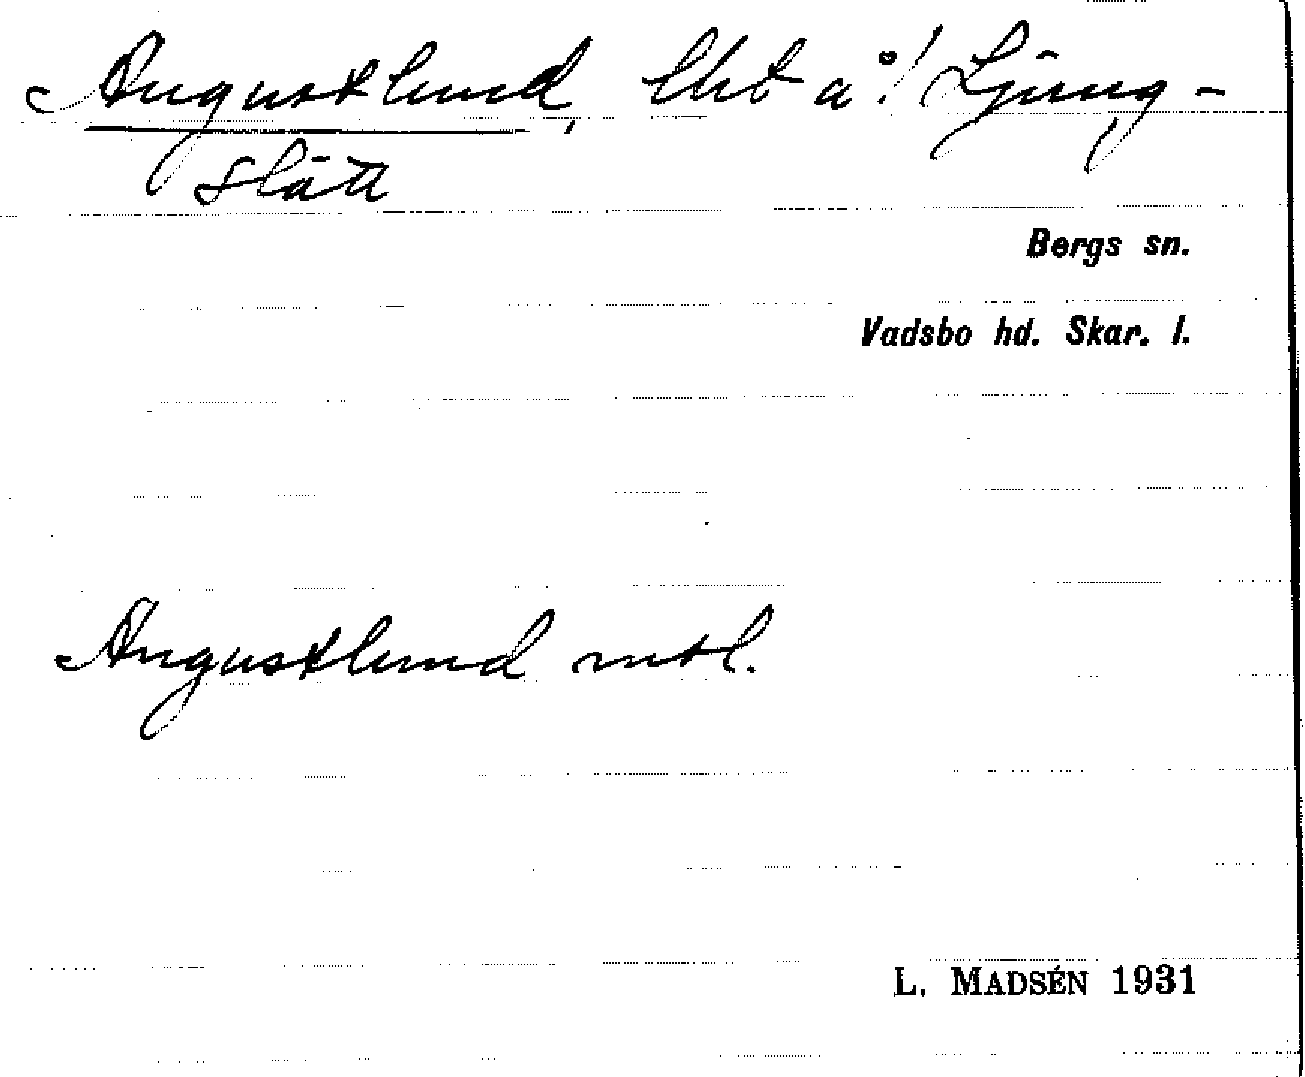 Augustlund, lht å ! Ljung-
slätt
Bergs sn.
Vadsbo hd. Skar. l.
Augustlund mtl.
L. MADSÉN 1931